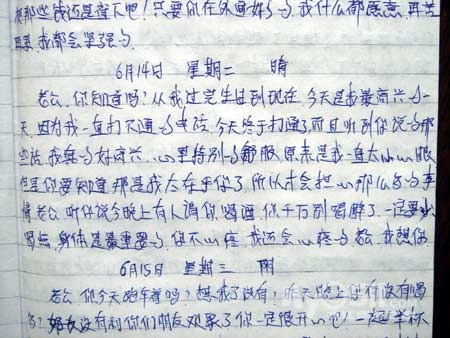 那些我还是省下吧！只要你在外面好的.我什么都愿意.再苦
再累.我都会坚强的.
6月14日 星期二 晴
老公.你知道吗?从我过完生日到现在.今天是我最高兴的一
天.因为我一直打不通的电话.今天终于打通了.而且听到你说的那
些话.我真的好高兴...心里特别的舒服.原来是我一直太小心眼
但是你要知道.那是我太在乎你了.所以才会担心那么多的事
情.老公.听你说今晚上有人请你喝酒.你千万别喝醉了.一定要少
喝点.身体是最重要的.你不心疼.我还会心疼的.老公.我想你
6月15日 星期三 阴
老公.你今天跑车着吗?想我了没有?昨天晚上你有没有喝
多?没有利你们朋友欢聚了.你一定很开心吧!一起举杯